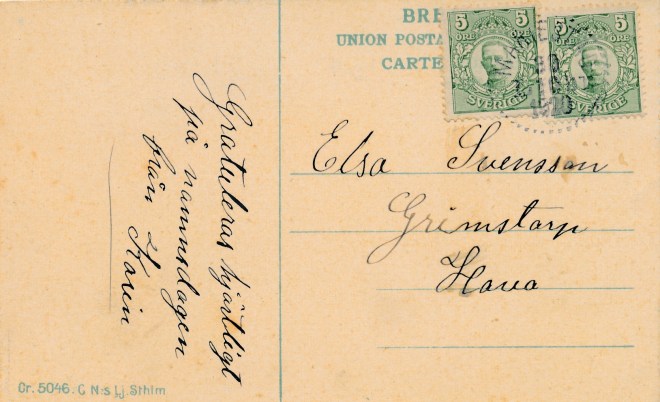 BRE
UNION POSTA
CARTE
5 5
ÖRE ÖRE
SVERIGE
5 5
ÖRE ÖRE
SVERIGE
Gratuleras hjärtligt
på namnsdagen
från
Karin
Elsa Svensson
Grimstorp
Cr. 5046. C N:s Lj. Sthlm